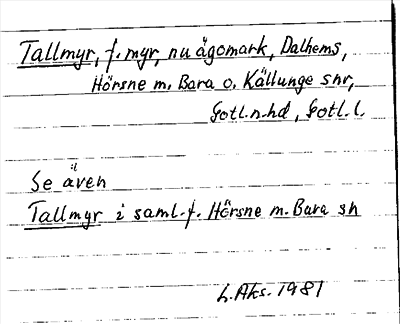 Tallmyr, f. myr, nu ägomark, Dalhems,
Hörsne m. Bara o. Källunge snr,
Gotl.n.hd, Gotl.l.
Se även
Tallmyr i saml. f. Hörsne m. Bara sn
L.Aks. 1981